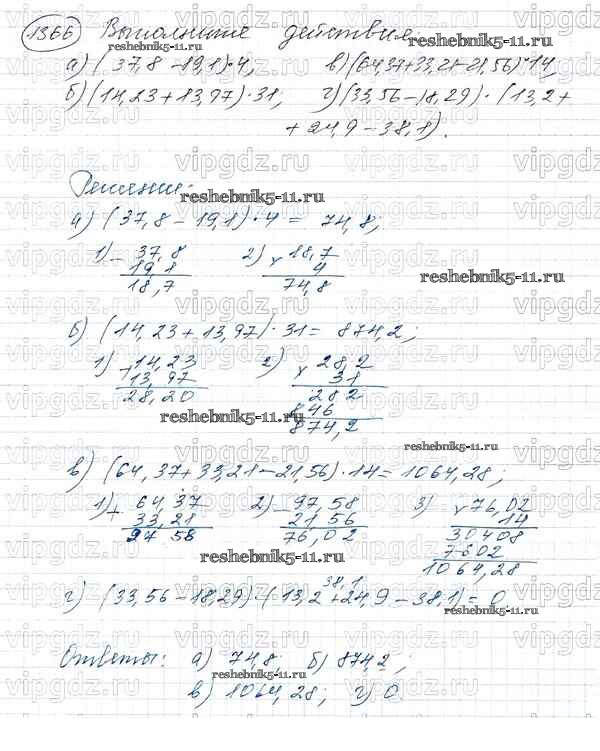 1366 Выполните действия:
а) (37,8 - 19,1)·4; в) (64,37+33,21-21,56)·14,
б) (14,23 + 13,97)·31; г) (33,56 - 18,29)·(13,2+
+ 24,9 - 38,1).
Решение:
а) (37,8 - 19,1)·4 = 74,8;
1) - 37,8 2) × 18,7
19,1 4
18,7 74,8
б) (14,23 + 13,97)·31 = 874,2;
1) + 14,23 2) × 28,2
13,97 31
28,20 282
846
874,2
в) (64,37+33,21-21,56)·14=1064,28,
1) + 64,37 2) - 97,58 3) × 76,02
33,21 21,56 14
97 58 76,02 30408
7602
1064,28
38,1
г) (33,56 - 18,29)·(13,2+24,9 - 38,1) = 0
Ответы: а) 74,8; б) 874,2;
в) 1064,28; г) 0.
reshebnik5-11.ru
vipgdz.ru